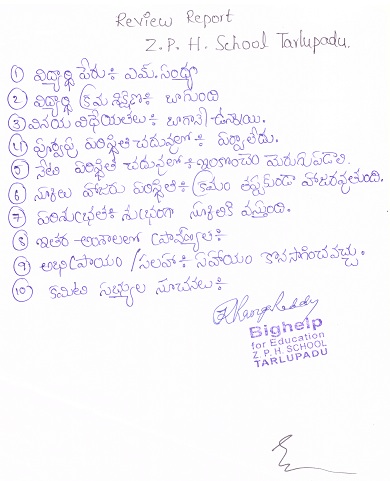 Review Report
Z. P. H. School Tarlupadu.
① విద్యార్థి పేరు ః ఎమ్. సంధ్యా
② విద్యార్థి క్రమశిక్షణ ః బాగుంది
③ వినయ విధేయతలు ః బాగానే ఉన్నాయి.
④ పూర్వపు పరిస్థితి చదువులో ః పర్వాలేదు.
⑤ నేటి పరిస్థితి చదువులో ః ఇంకొంచెం మెరుగుపడాలి.
⑥ స్కూలు హాజరు పరిస్థితి ః క్రమం తప్పకుండా హాజరవుతుంది.
⑦ పరిశుభ్రత ః శుభ్రంగా స్కూలుకి వస్తుంది.
⑧ ఇతర అంశాలలో ప్రావీణ్యత ః
⑨ అభిప్రాయం / సలహా ః సహాయం కొనసాగించవచ్చు.
⑩ కమిటి సభ్యుల సూచనలు ః
Bighelp
for Education
Z. P. H. SCHOOL
TARLUPADU